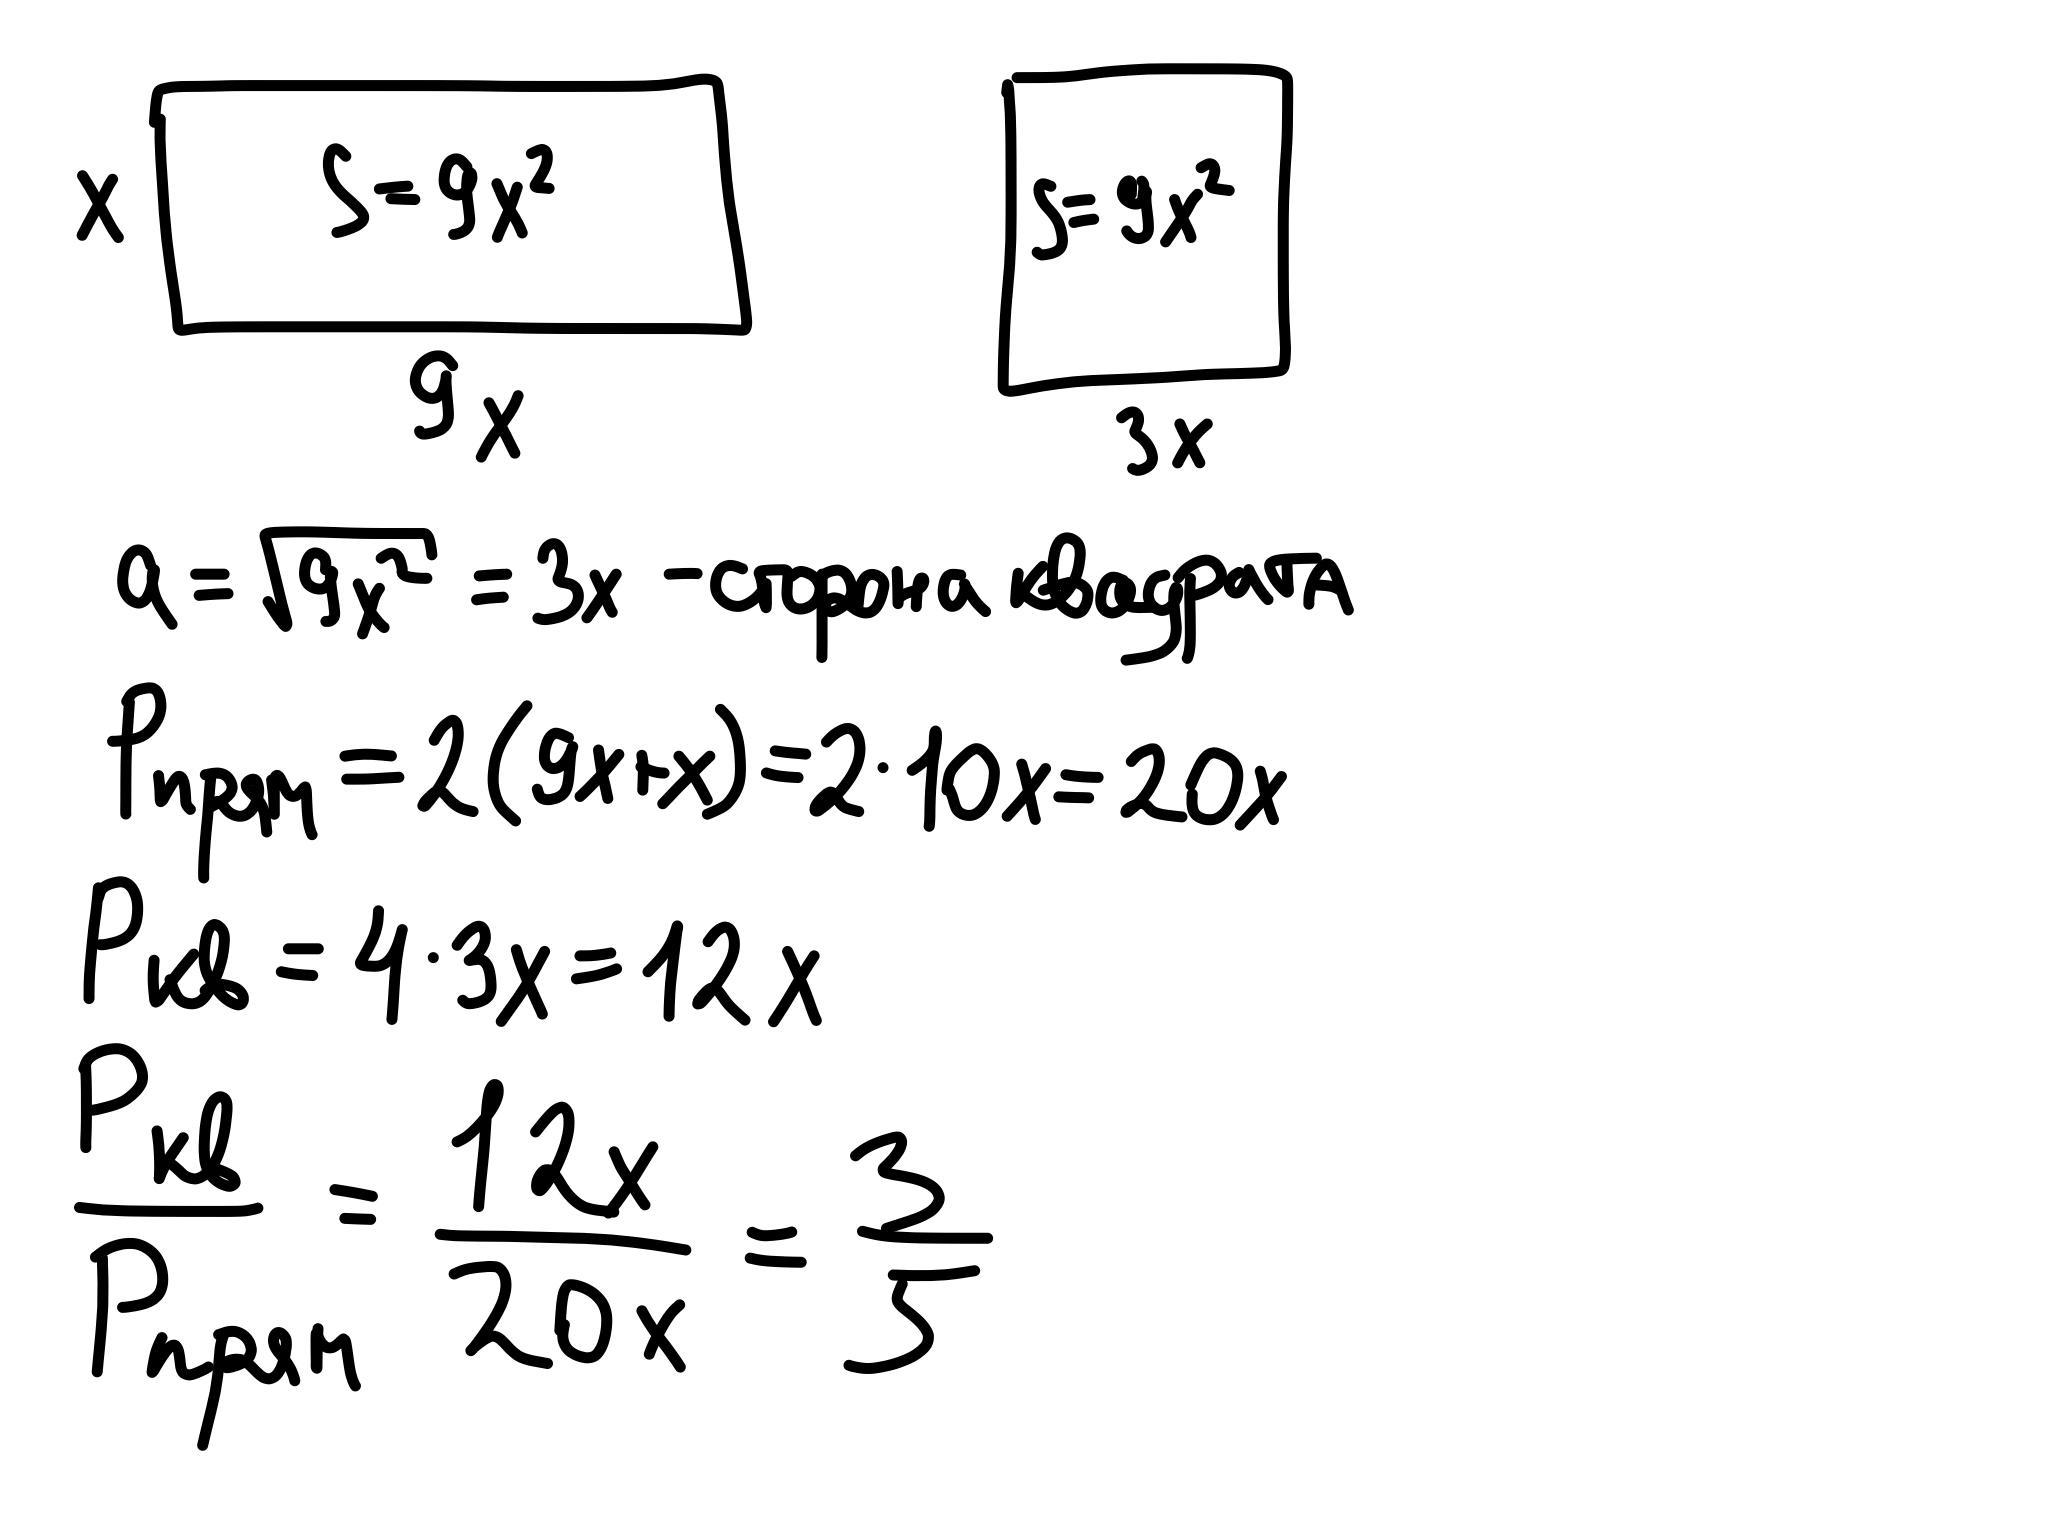 x S=9x² S=9x²
9x 3x
a = √9x² = 3x - сторона квадрата
Pпрям = 2(9x+x) = 2·10x = 20x
Pкв = 4·3x = 12x
Pкв/Pпрям = 12x/20x = 3/5